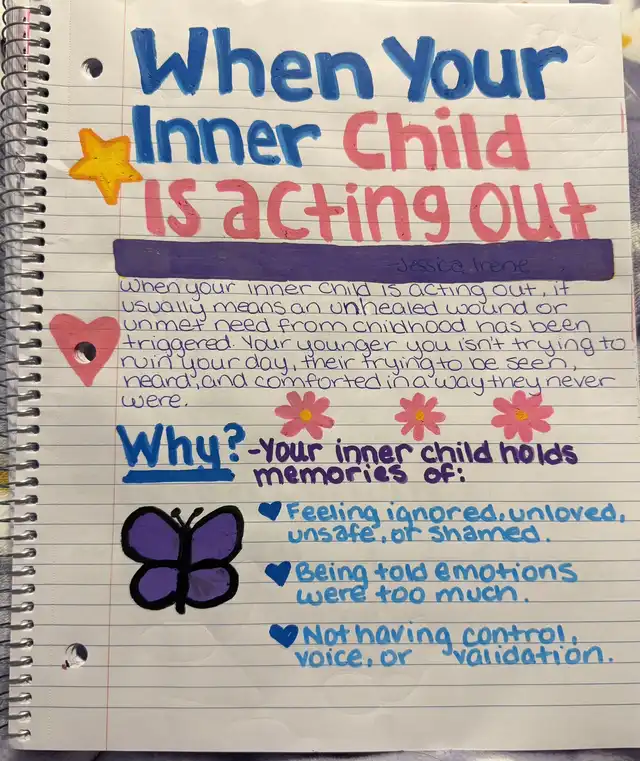 When Your
Inner Child
Is acting out
-Jessica Irene
when your inner child is acting out, it
usually means an unhealed wound or
unmet need from childhood has been
triggered. Your younger you isn't trying to
ruin your day, their trying to be seen,
heard, and comforted in a way they never
were.
Why? -Your inner child holds
memories of:
Feeling ignored, unloved,
unsafe, or shamed.
Being told emotions
were too much.
Not having control,
voice, or validation.